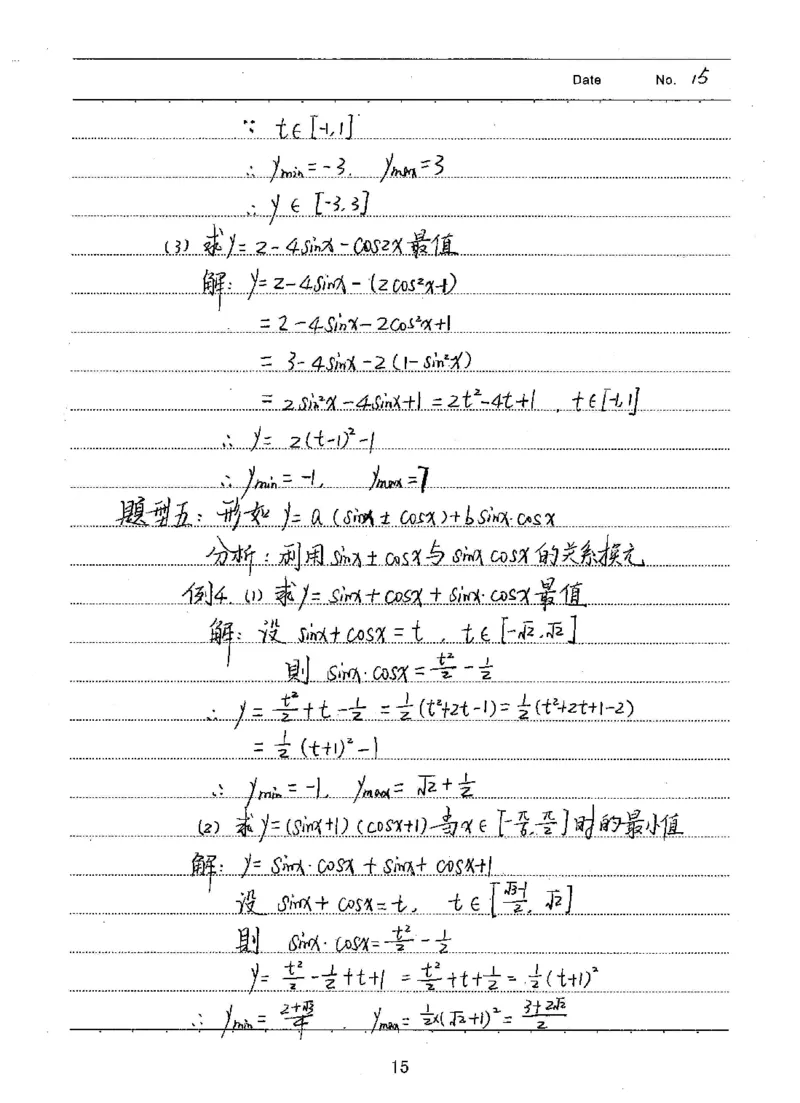 Date No. 15
∵ t∈[-1,1]
∴ ymin=-3, ymax=3
∴ y∈[-3,3]
(3) 求y=2-4sinx-cos2x最值
解: y=2-4sinx-(2cos²x-1)
=2-4sinx-2cos²x+1
= 3-4sinx-2(1-sin²x)
= 2sin²x-4sinx+1=2t²-4t+1, t∈[-1,1]
∴ y= 2(t-1)²-1
∴ ymin=-1, ymax=7
题型五: 形如 y=a(sinx±cosx)+bsinx·cosx
分析: 利用sinx±cosx与sinxcosx的关系换元
例4. (1) 求y=sinx+cosx+sinx·cosx最值
解: 设 sinx+cosx=t, t∈[-√2,√2]
則 sinx·cosx=t²/2-1/2
∴ y=t²/2+t-1/2=1/2(t²+2t-1)=1/2(t²+2t+1-2)
=1/2(t+1)²-1
∴ ymin=-1, ymax=√2+1/2
(2) 求y=(sinx+1)(cosx+1)当x∈[-π/6,π/2]时的最小值
解: y=sinx·cosx+sinx+cosx+1
设 sinx+cosx=t, t∈[(√3-1)/2, √2]
則 sinx·cosx=t²/2-1/2
y=t²/2-1/2+t+1=t²/2+t+1/2=1/2(t+1)²
∴ ymin=(2+√3)/4, ymax=1/2×(√2+1)²=(3+2√2)/2
15